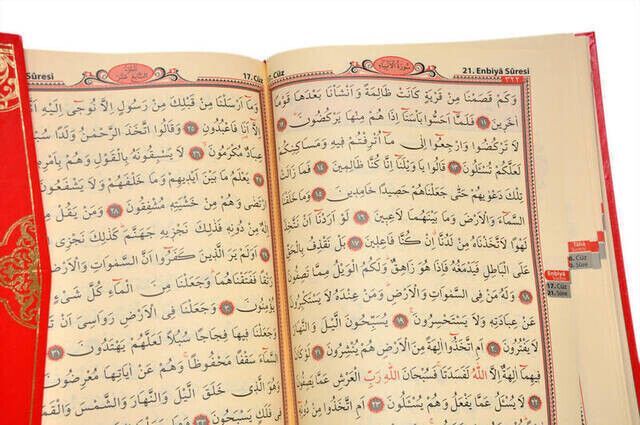 21. Enbiyâ Sûresi
سورة الأنبياء
وَكَمْ قَصَمْنَا مِنْ قَرْيَةٍ كَانَتْ ظَالِمَةً وَأَنْشَأْنَا بَعْدَهَا قَوْمًا
اٰخَرِينَ ﴿١١﴾ فَلَمَّا أَحَسُّوا بَأْسَنَا إِذَا هُمْ مِنْهَا يَرْكُضُونَ ﴿١٢﴾
لَا تَرْكُضُوا وَارْجِعُوا إِلٰى مَا أُتْرِفْتُمْ فِيهِ وَمَسَاكِنِكُمْ
لَعَلَّكُمْ تُسْئَلُونَ ﴿١٣﴾ قَالُوا يَا وَيْلَنَا إِنَّا كُنَّا ظَالِمِينَ ﴿١٤﴾ فَمَا زَالَتْ
تِلْكَ دَعْوٰيهُمْ حَتّٰى جَعَلْنَاهُمْ حَصِيدًا خَامِدِينَ ﴿١٥﴾ وَمَا خَلَقْنَا
السَّمَاءَ وَالْأَرْضَ وَمَا بَيْنَهُمَا لَاعِبِينَ ﴿١٦﴾ لَوْ أَرَدْنَا أَنْ نَتَّخِذَ
لَهْوًا لَاتَّخَذْنَاهُ مِنْ لَدُنَّا إِنْ كُنَّا فَاعِلِينَ ﴿١٧﴾ بَلْ نَقْذِفُ بِالْحَقِّ
عَلَى الْبَاطِلِ فَيَدْمَغُهُ فَإِذَا هُوَ زَاهِقٌ وَلَكُمُ الْوَيْلُ مِمَّا تَصِفُونَ
﴿١٨﴾ وَلَهُ مَنْ فِي السَّمٰوَاتِ وَالْأَرْضِ وَمَنْ عِنْدَهُ لَا يَسْتَكْبِرُونَ
عَنْ عِبَادَتِهِ وَلَا يَسْتَحْسِرُونَ ﴿١٩﴾ يُسَبِّحُونَ اللَّيْلَ وَالنَّهَارَ
لَا يَفْتُرُونَ ﴿٢٠﴾ أَمِ اتَّخَذُوا اٰلِهَةً مِنَ الْأَرْضِ هُمْ يُنْشِرُونَ ﴿٢١﴾
فِيهِمَا اٰلِهَةٌ إِلَّا اللّٰهُ لَفَسَدَتَا فَسُبْحَانَ اللّٰهِ رَبِّ الْعَرْشِ عَمَّا يَصِفُونَ
لَا يُسْئَلُ عَمَّا يَفْعَلُ وَهُمْ يُسْئَلُونَ ﴿٢٣﴾ أَمِ اتَّخَذُوا مِنْ دُونِهِ
Tâhâ
Enbiyâ
17. Cüz
21. Sûre
17. Cüz
Sûresi
وَمَا أَرْسَلْنَا مِنْ قَبْلِكَ مِنْ رَسُولٍ إِلَّا نُوحِي إِلَيْهِ
إِلَّا أَنَا فَاعْبُدُونِ ﴿٢٥﴾ وَقَالُوا اتَّخَذَ الرَّحْمٰنُ وَلَدًا
عِبَادٌ مُكْرَمُونَ ﴿٢٦﴾ لَا يَسْبِقُونَهُ بِالْقَوْلِ وَهُمْ بِأَمْرِهِ
يَعْلَمُ مَا بَيْنَ أَيْدِيهِمْ وَمَا خَلْفَهُمْ وَلَا يَشْفَعُونَ
وَهُمْ مِنْ خَشْيَتِهِ مُشْفِقُونَ ﴿٢٨﴾ وَمَنْ يَقُلْ
مِنْ دُونِهِ فَذٰلِكَ نَجْزِيهِ جَهَنَّمَ كَذٰلِكَ نَجْزِي
أَوَلَمْ يَرَ الَّذِينَ كَفَرُوا أَنَّ السَّمٰوَاتِ وَالْأَرْضَ
رَتْقًا فَفَتَقْنَاهُمَا وَجَعَلْنَا مِنَ الْمَاءِ كُلَّ شَيْءٍ
يُؤْمِنُونَ ﴿٣٠﴾ وَجَعَلْنَا فِي الْأَرْضِ رَوَاسِيَ أَنْ
وَجَعَلْنَا فِيهَا فِجَاجًا سُبُلًا لَعَلَّهُمْ يَهْتَدُونَ ﴿٣١﴾
السَّمَاءَ سَقْفًا مَحْفُوظًا وَهُمْ عَنْ اٰيَاتِهَا مُعْرِضُونَ
وَهُوَ الَّذِي خَلَقَ اللَّيْلَ وَالنَّهَارَ وَالشَّمْسَ وَالْقَمَرَ
فِي فَلَكٍ يَسْبَحُونَ ﴿٣٣﴾